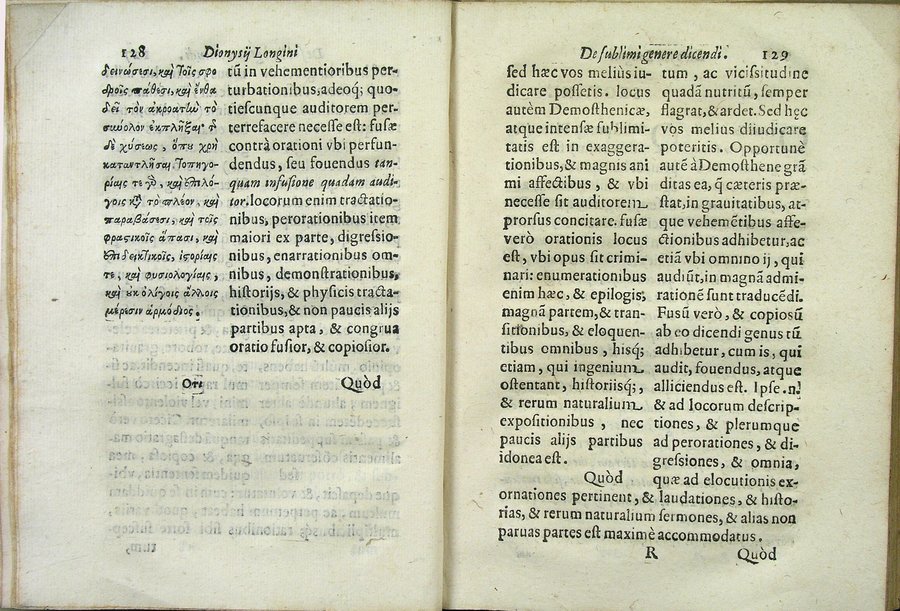 128 Dionysij Longini
δεινώσεσι, καὶ τοῖς σφο
δροῖς πάθεσι, καὶ ἔνθα
δεῖ τὸν ἀκροατὴν τὸ
σύνολον ἐκπλῆξαι· τ̃
δὲ χύσεως, ὅπου χρὴ
καταντλῆσαι τοπηγο-
ρίαις τε γὸ, καὶ ἐπιλό-
γοις κζ τὸ πλέον, καὶ
παραβάσεσι, καὶ τοῖς
φραστικοῖς ἅπασι, καὶ
ἐπιδεικτικοῖς, ἱστορίαις
τε, καὶ φυσιολογίαις,
καὶ οὐκ ὀλίγοις ἄλλοις
μέρεσιν ἁρμόδιος.
Ὅτι
tū in vehementioribus per-
turbationibus, adeoq; quo-
tiescunque auditorem per-
terrefacere necesse est: fusæ
contrà orationi vbi perfun-
dendus, seu fouendus tan-
quam infusione quadam audi-
tor. locorum enim tractatio-
nibus, perorationibus item
maiori ex parte, digressio-
nibus, enarrationibus om-
nibus, demonstrationibus,
historijs, & physicis tracta-
tionibus, & non paucis alijs
partibus apta, & congrua
oratio fusior, & copiosior.
Quòd
De sublimi genere dicendi. 129
sed hæc vos melius iu-
dicare possetis. locus
autèm Demosthenicæ,
atque intensæ sublimi-
tatis est in exaggera-
tionibus, & magnis ani
mi affectibus, & vbi
necesse sit auditorem
prorsus concitare. fusæ
verò orationis locus
est, vbi opus sit crimi-
nari: enumerationibus
enim hæc, & epilogis,
magnā partem, & tran-
sitionibus, & eloquen-
tibus omnibus, hisq;
etiam, qui ingenium
ostentant, historiisq;,
& rerum naturalium
expositionibus, nec
paucis alijs partibus
idonea est.
tum, ac vicissitudine
quadā nutritū, semper
flagrat, & ardet. Sed hęc
vos melius diiudicare
poteritis. Opportunè
autē à Demosthene grā
ditas ea, q̃ cæteris præ-
stat, in grauitatibus, at-
que vehemētibus affe-
ctionibus adhibetur, ac
etiā vbi omnino ij, qui
audiūt, in magnā admi-
rationē sunt traducēdi.
Fusū verò, & copiosū
ab eo dicendi genus tū
adhibetur, cum is, qui
audit, fouendus, atque
alliciendus est. Ipse .n.
& ad locorum descrip-
tiones, & plerumque
ad perorationes, & di-
gressiones, & omnia,
Quòd quæ ad elocutionis ex-
ornationes pertinent, & laudationes, & histo-
rias, & rerum naturalium sermones, & alias non
paruas partes est maximè accommodatus.
R Quòd